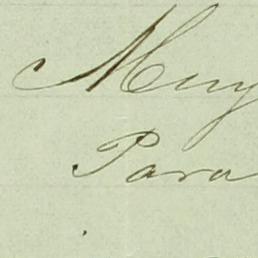 Muy
Para